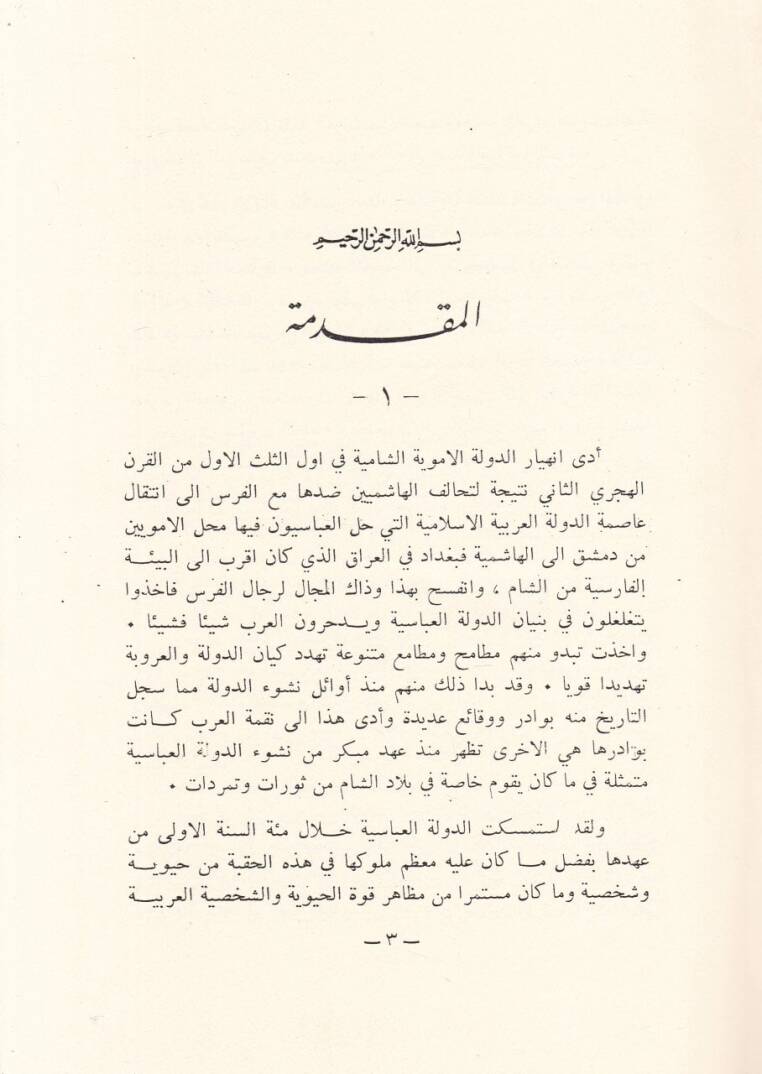 بسم الله الرحمن الرحيم
المقدمة
- ١ -
أدى انهيار الدولة الاموية الشامية في اول الثلث الاول من القرن
الهجري الثاني نتيجة لتحالف الهاشميين ضدها مع الفرس الى انتقال
عاصمة الدولة العربية الاسلامية التي حل العباسيون فيها محل الامويين
من دمشق الى الهاشمية فبغداد في العراق الذي كان اقرب الى البيئة
الفارسية من الشام ، وانفسح بهذا وذاك المجال لرجال الفرس فاخذوا
يتغلغلون في بنيان الدولة العباسية ويدحرون العرب شيئا فشيئا •
واخذت تبدو منهم مطامح ومطامع متنوعة تهدد كيان الدولة والعروبة
تهديدا قويا • وقد بدا ذلك منهم منذ أوائل نشوء الدولة مما سجل
التاريخ منه بوادر ووقائع عديدة وأدى هذا الى نقمة العرب كانت
بوادرها هي الاخرى تظهر منذ عهد مبكر من نشوء الدولة العباسية
متمثلة في ما كان يقوم خاصة في بلاد الشام من ثورات وتمردات •
ولقد استمسكت الدولة العباسية خلال مئة السنة الاولى من
عهدها بفضل ما كان عليه معظم ملوكها في هذه الحقبة من حيوية
وشخصية وما كان مستمرا من مظاهر قوة الحيوية والشخصية العربية
- ٣ -